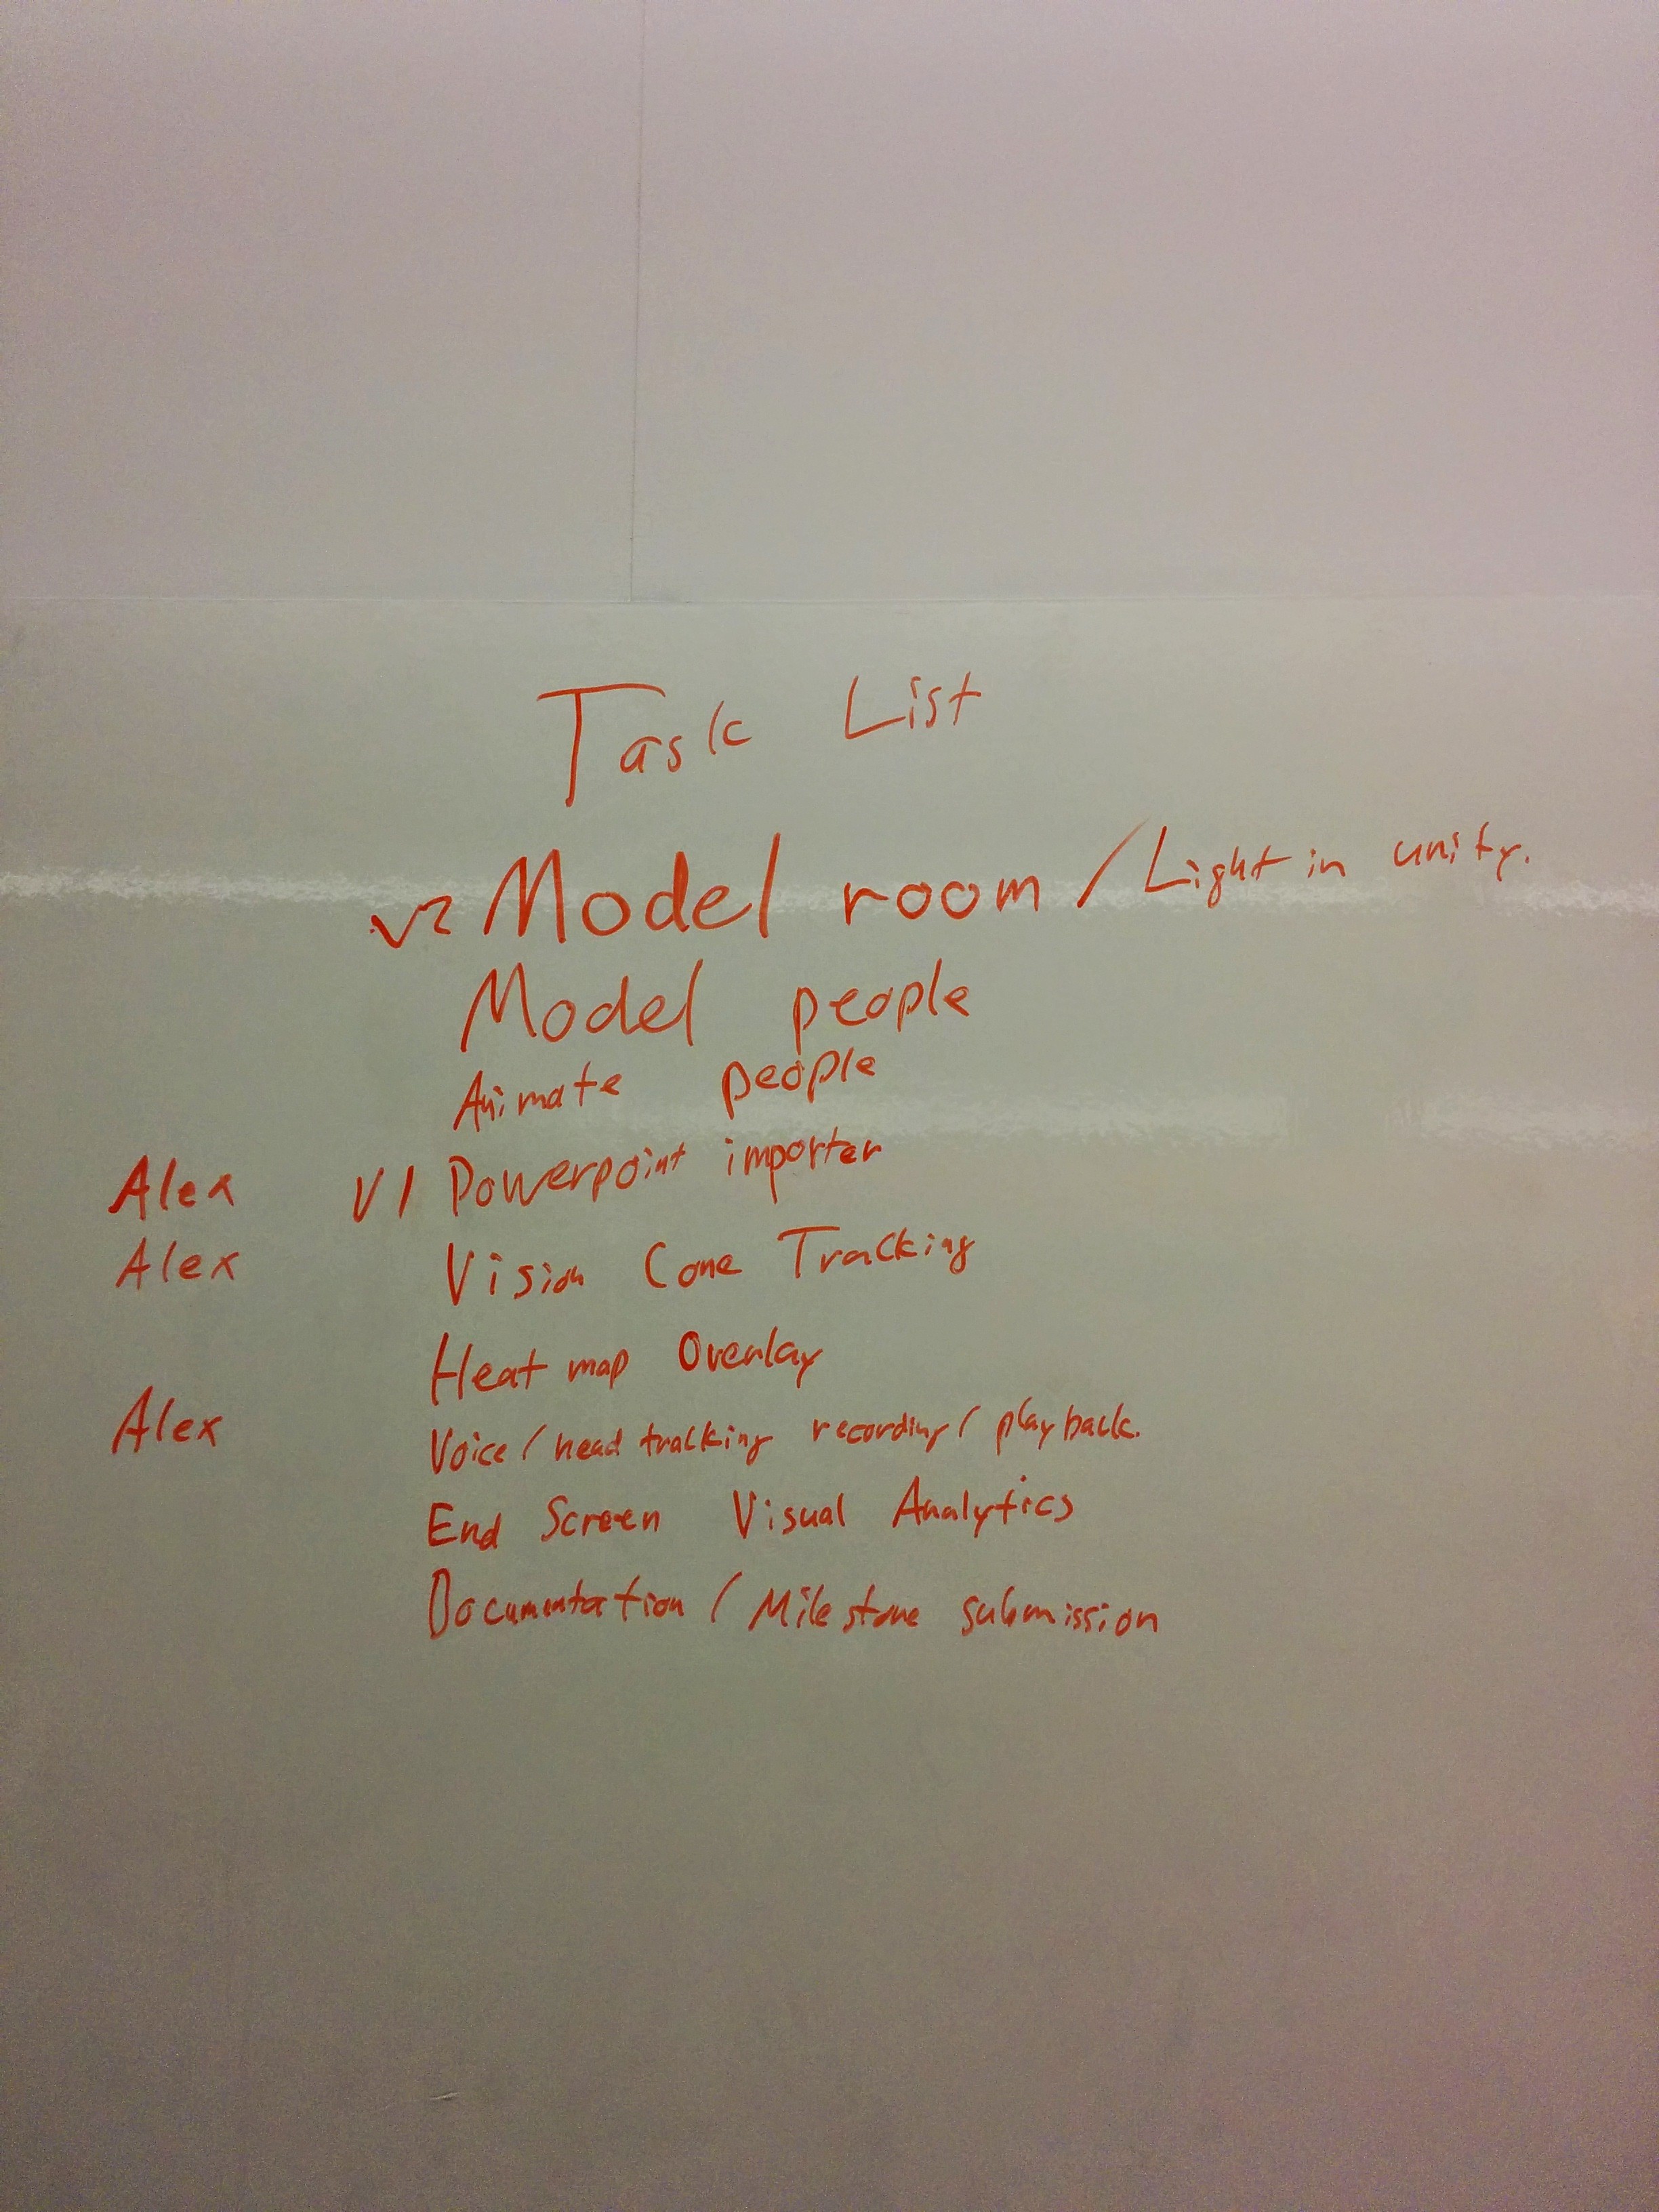 Task List
V2 Model room / Light in unity.
Model people
Animate people
Alex V1 Powerpoint importer
Alex Vision Cone Tracking
Heat map Overlay
Alex Voice / head tracking recording / playback.
End Screen Visual Analytics
Documentation / Milestone submission